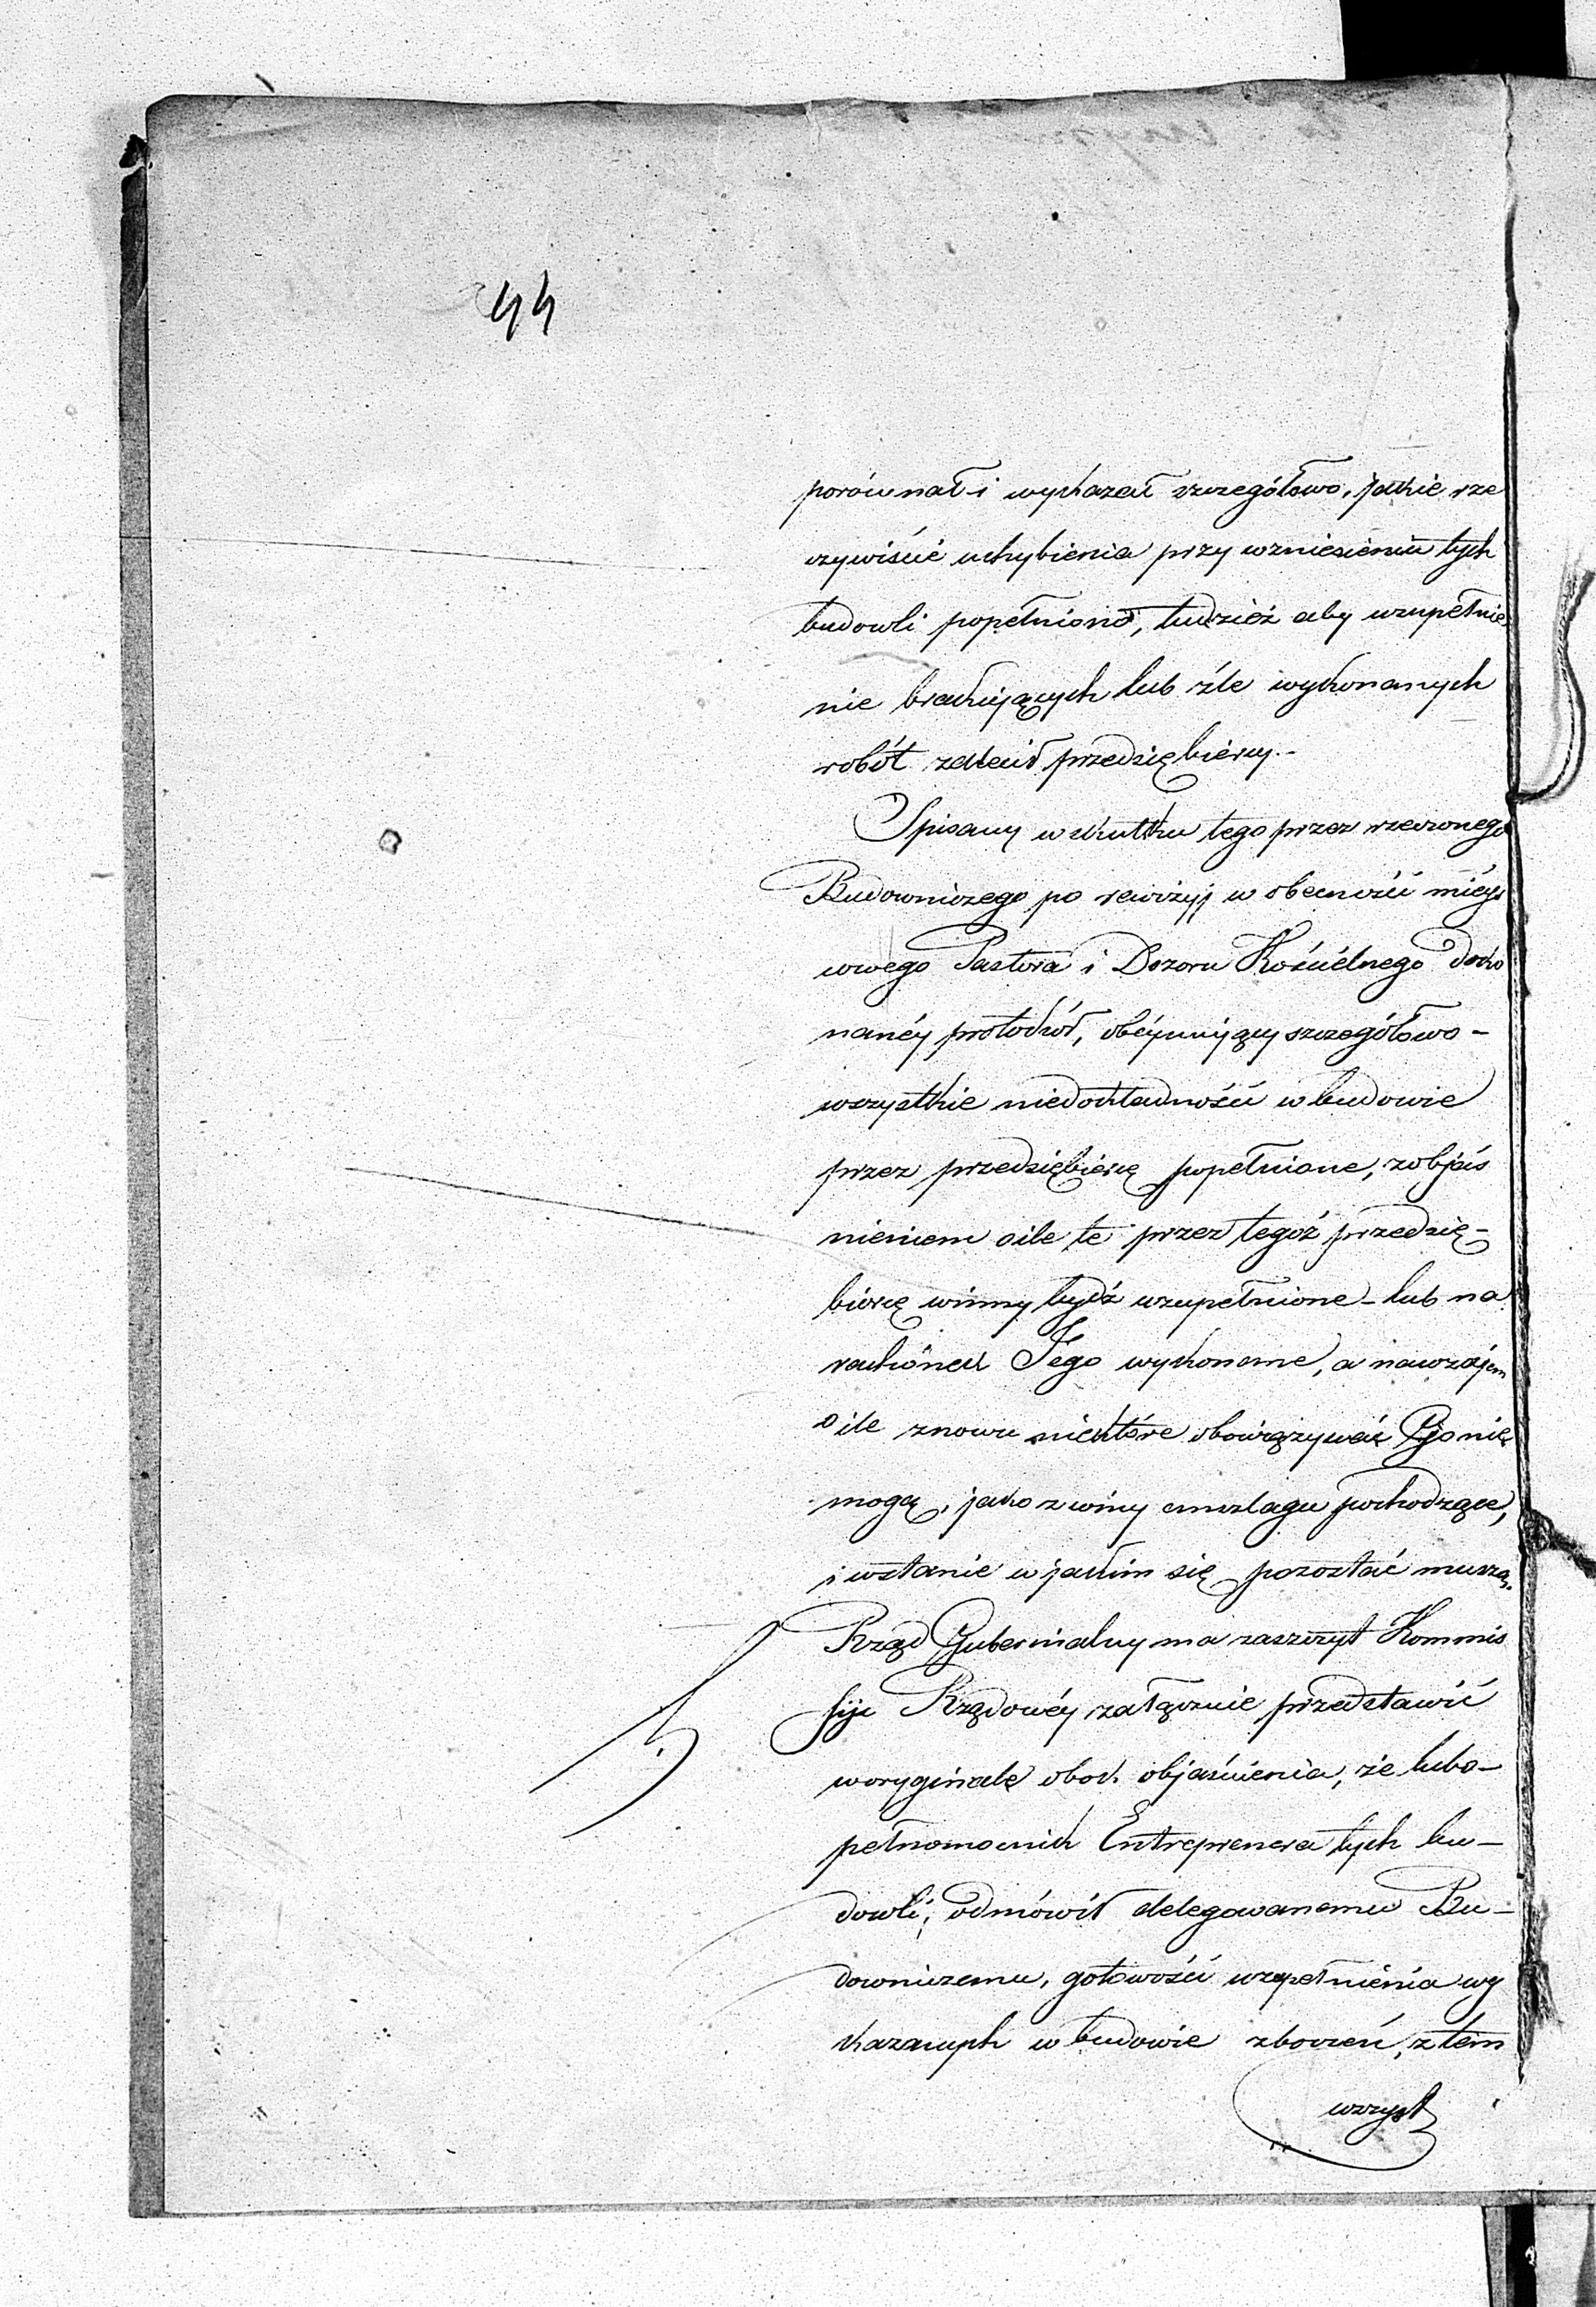 44
porównał i wykazał szczegółowo, jakie rze
czywiście uchybienia przy wzniesieniu tych
budowli popełniono, tudzież aby uzupełnie
nie brakujących lub źle wykonanych
robót zalecił przedsiębiercy.-
Spisany w skutku tego przez rzeczonego
Budowniczego po rewizyj w obecności miéys
cowego Pastora i Dozoru Kościelnego doko
nanéy protokół, obéymujący szczegółowo -
wszystkie niedokładności w budowie
przez przedsiębiercę popełnione, z objaś
nieniem o ile te przez tegoż przedsię-
biercę winny bydź uzupełnione - lub na
rachunek Jego wykonane, a nawzajem
o ile znowu niektóre obowiązywać Go nie
mogą, jako z winy anszlagu pochodzące,
i w stanie w jakim się pozostać muszą.
Rząd Gubernialny ma zaszczyt Kommis
syi Rządowéy załącznie przedstawić
w oryginale obok objaśnienia, że lubo -
pełnomocnik Entreprenera tych bu -
dowli, odmówił delegowanemu Bu -
downiczemu, gotowości uzupełnienia wy
kazanych w budowie zboczeń, z tem
wszyst